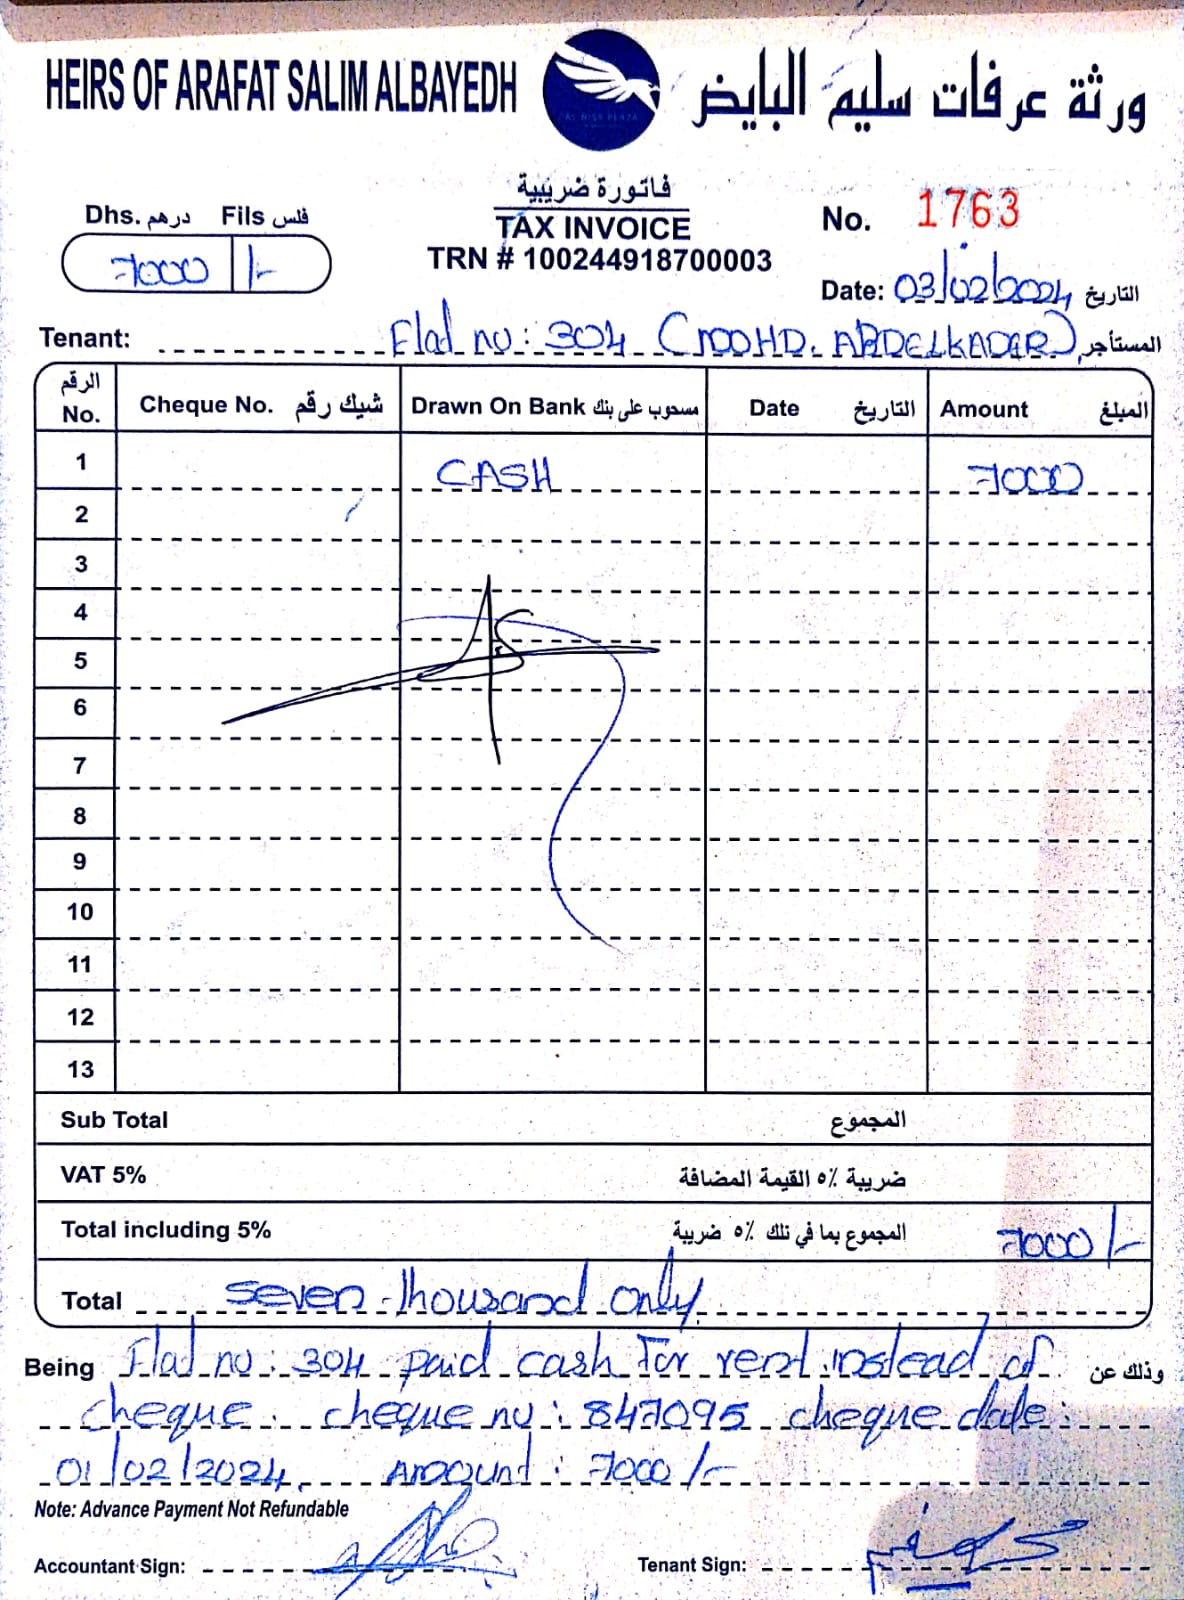 HEIRS OF ARAFAT SALIM ALBAYEDH
ورثة عرفات سليم البايض
فاتورة ضريبية
TAX INVOICE
TRN # 100244918700003
Dhs. درهم Fils فلس
7000 /-
No. 1763
Date: 03/02/2024 التاريخ
Tenant: Flat no: 304 (MOHD. ABDELKADER) المستأجر
الرقم No. Cheque No. شيك رقم Drawn On Bank مسحوب على بنك Date التاريخ Amount المبلغ
1 CASH 7000
2
3
4
5
6
7
8
9
10
11
12
13
Sub Total المجموع
VAT 5% ضريبة ٥٪ القيمة المضافة
Total including 5% المجموع بما في تلك ٥٪ ضريبة 7000/-
Total seven thousand only.
Being Flat no: 304 paid cash for rent instead of وذلك عن
cheque. cheque no: 847095 cheque date:
01/02/2024, Amount: 7000/-
Note: Advance Payment Not Refundable
Accountant Sign: Tenant Sign: